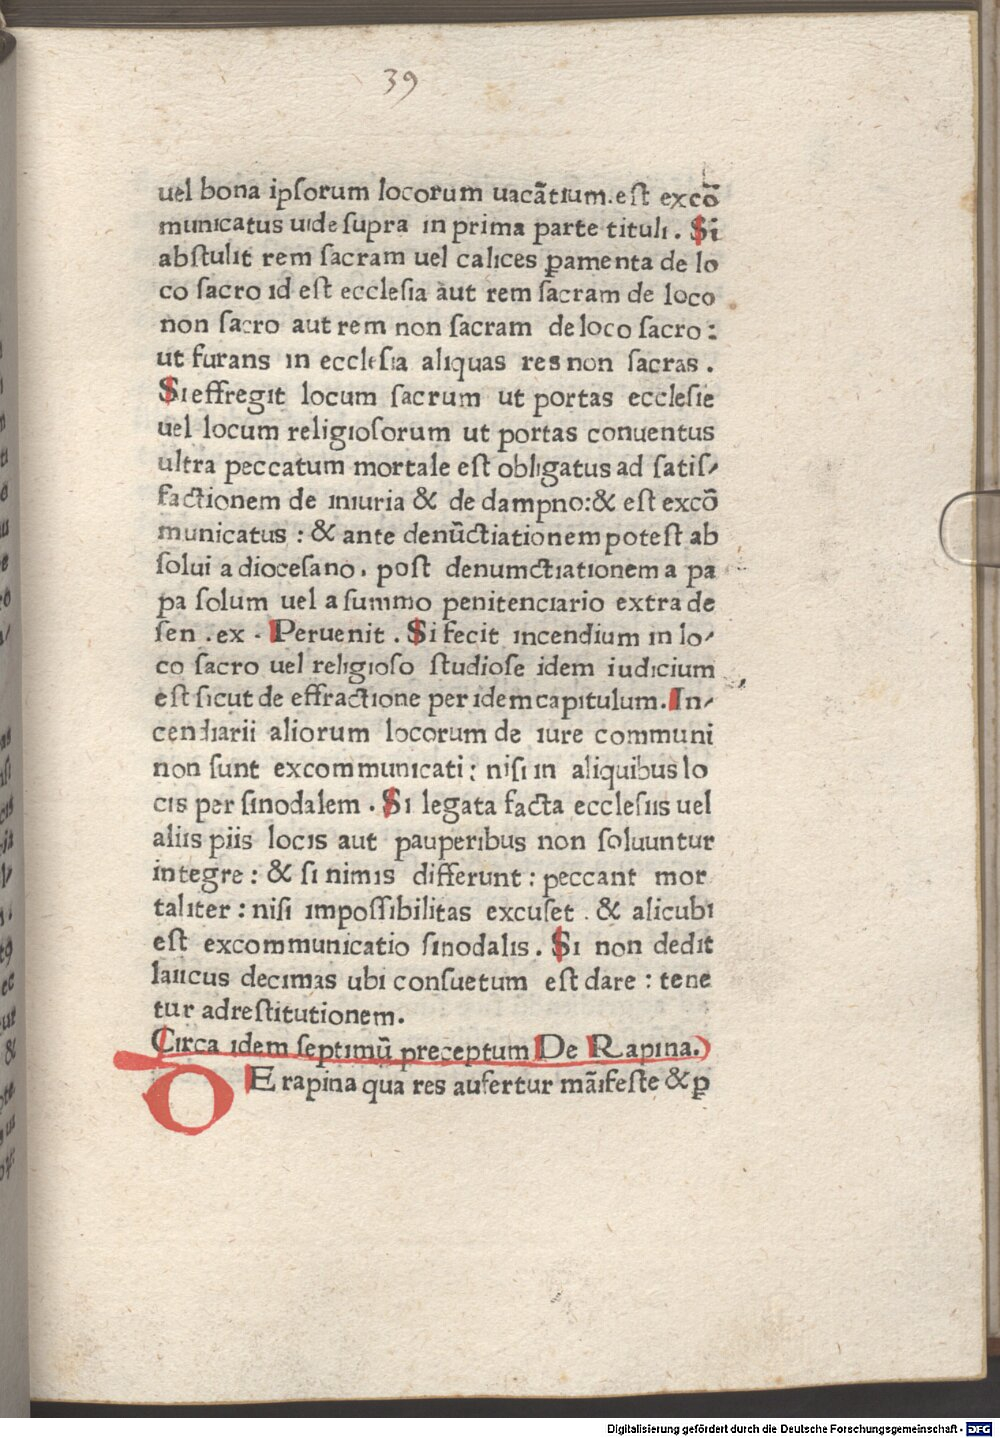 39
uel bona ipſorum locorum uacãtium.eſt excõ
municatus uide ſupra in prima parte tituli. Si
abſtulit rem ſacram uel calices ꝑamenta de lo
co ſacro id eſt eccleſia aut rem ſacram de loco
non ſacro aut rem non ſacram de loco ſacro:
ut furans in eccleſia aliquas res non ſacras.
Si effregit locum ſacrum ut portas eccleſie
uel locum religioſorum ut portas conuentus
ultra peccatum mortale eſt obligatus ad ſatiſ⸗
factionem de iniuria & de dampno:& eſt excõ
municatus : & ante denũctiationem poteſt ab
ſolui a dioceſano. poſt denumctiationem a pa
pa ſolum uel a ſummo penitenciario extra de
ſen .ex . Peruenit . Si fecit incendium in lo⸗
co ſacro uel religioſo ſtudioſe idem iudicium
eſt ſicut de effractione per idem capitulum. In⸗
cendiarii aliorum locorum de iure communi
non ſunt excommunicati: niſi in aliquibus lo
cis per ſinodalem . Si legata facta eccleſiis uel
aliis piis locis aut pauperibus non ſoluuntur
integre : & ſi nimis differunt : peccant mor
taliter : niſi impoſſibilitas excuſet . & alicubi
eſt excommunicatio ſinodalis. Si non dedit
laucus decimas ubi conſuetum eſt dare : tene
tur ad reſtitutionem.
Circa idem ſeptimũ preceptum De Rapina.)
D E rapina qua res aufertur mãifeſte & ꝑ
Digitalisierung gefördert durch die Deutsche Forschungsgemeinschaft - DFG